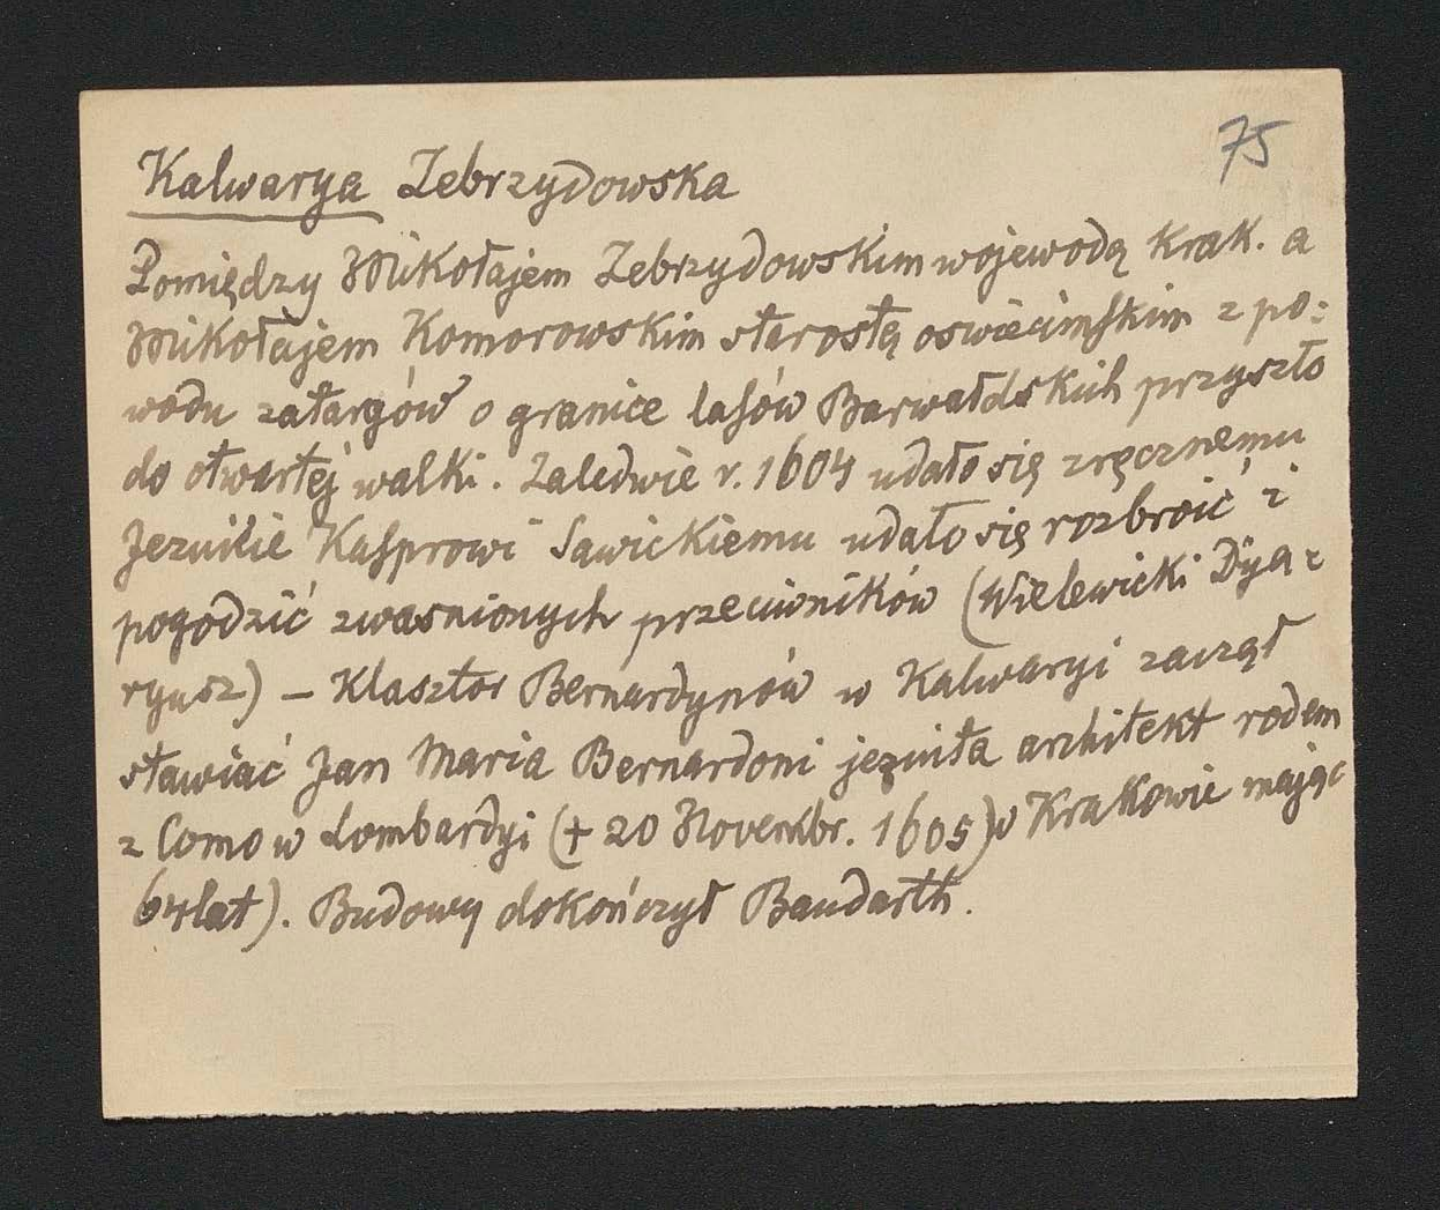 75
Kalwarya Zebrzydowska
Pomiędzy Mikołajem Zebrzydowskim wojewodą krak. a
Mikołajem Komorowskim starostą oswiecimskim z po:
wodu zatargów o granice lasów Barwałdskich przyszło
do otwartej walki. Zaledwie r. 1604 udało się zręcznemu
Jezuicie Kasprowi Sawickiemu udało się rozbroić i
pogodzić zwasnionych przeciwników (Wielewicki Dya:
ryusz) – Klasztor Bernardynów w Kalwaryi zaczął
stawiać Jan Maria Bernardoni jezuita architekt rodem
z Como w Lombardyi (+ 20 Novembr. 1605) w Krakowie mając
64 lat). Budowy dokończył Baudarth.